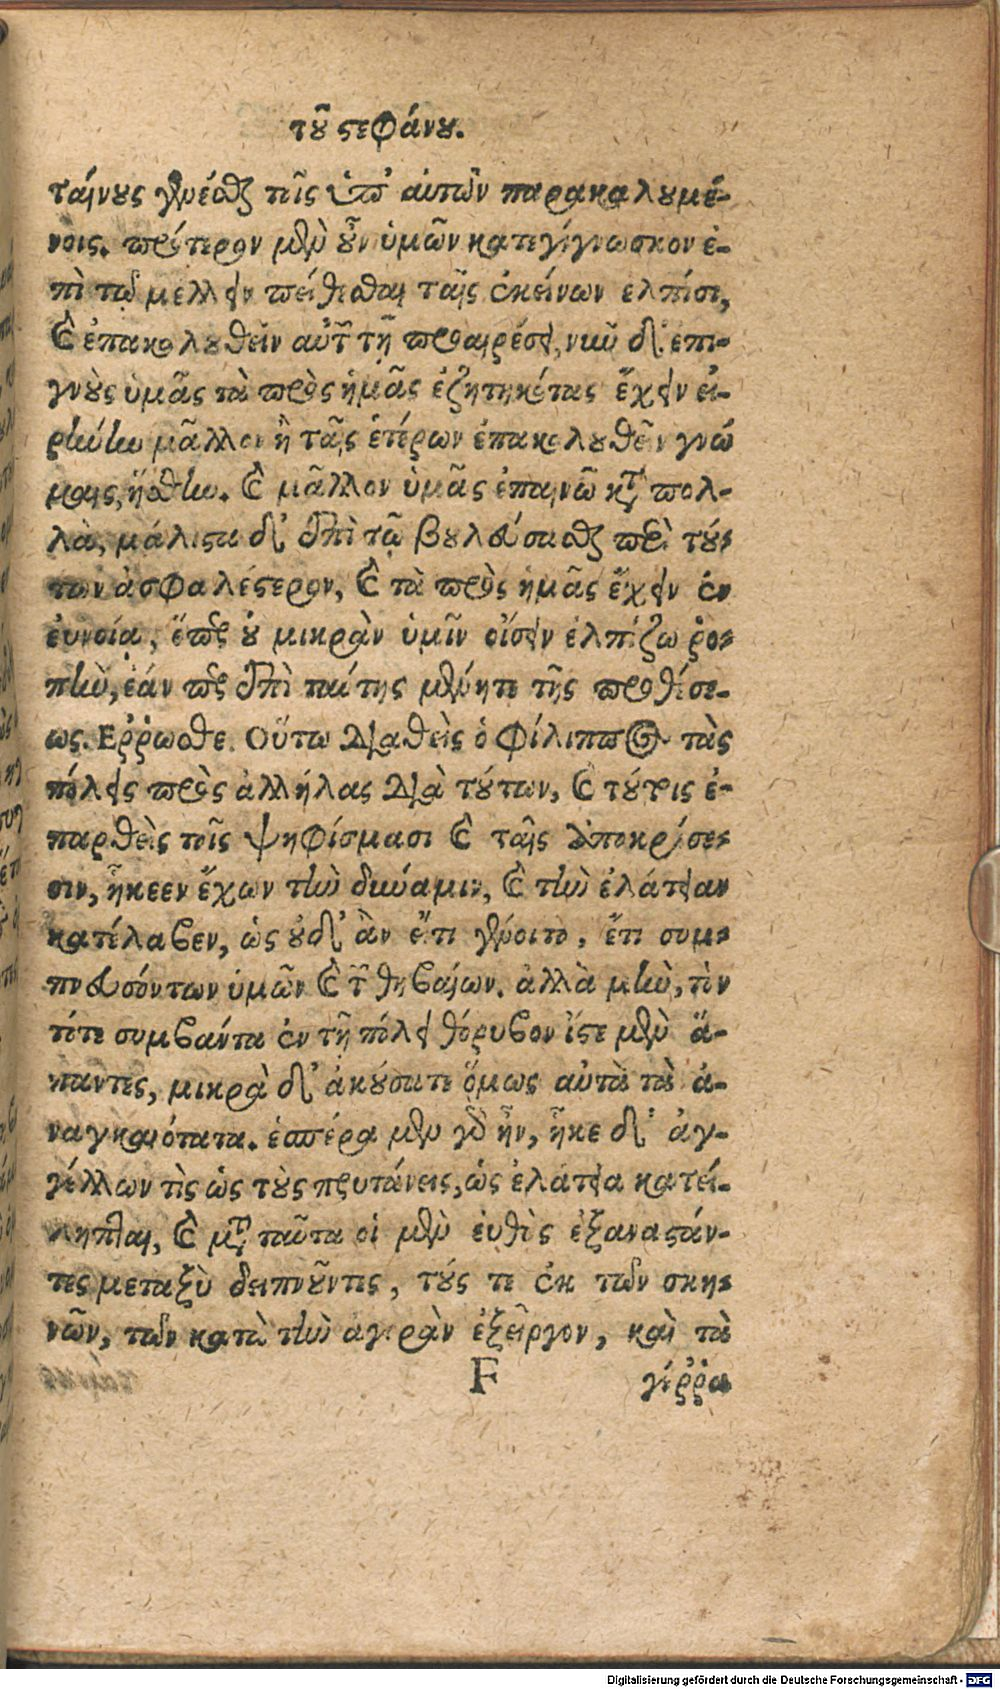 τοῦ στεφάνου.
ταίνους γενέσθαι τοῖς ὑπ' αὐτῶν παρακαλουμέ-
νοις. πρότερον μὲν οὖν ὑμῶν κατεγίγνωσκον ἐ-
πὶ τῷ μέλλειν πείθεσθαι ταῖς ἐκείνων ελπίσι,
καὶ ἐπακολουθεῖν αὐτῶν τῇ προαιρέσει, νῦν δ' επι-
γνοὺς ὑμᾶς τὰ πρὸς ἡμᾶς ἐζητηκότας ἔχειν εἰ-
ρήνην μᾶλλον ἢ ταῖς ἑτέρων ἐπακολουθεῖν γνώ
μαις, ἥσθην. καὶ μᾶλλον ὑμᾶς ἐπαινῶ κατὰ πολ-
λὰ, μάλιστα δ' ἐπὶ τῷ βουλεύσασθαι περὶ τού-
των ἀσφαλέστερον, καὶ τὰ πρὸς ἡμᾶς ἔχειν ἐν
ἐυνοίᾳ, ὅπερ οὐ μικρὰν ὑμῖν οἴσειν ἐλπίζω ῥο-
πὴν, ἐάν περ ἐπὶ ταύτης μένητε τῆς προθέσε-
ως. Ερῥωσθε. Οὕτω διαθεὶς ὁ Φίλιππος τὰς
πόλεις πρὸς ἀλλήλας διὰ τούτων, καὶ τούτοις ἐ-
παρθεὶς τοῖς ψηφίσμασι καὶ ταῖς ἀποκρίσε-
σιν, ἧκεεν ἔχων τὴν δύναμιν, καὶ τὴν ἐλάτειαν
κατέλαβεν, ὡς οὐδ' ἂν εἴ τι γένοιτο, ἔτι συμ-
πνευσόντων ὑμῶν καὶ τῶν θηβαίων. ἀλλὰ μὴν, τὸν
τότε συμβάντα ἐν τῇ πόλει θόρυβον ἴστε μὲν ἅ-
παντες, μικρὰ δ' ἀκούσατε ὅμως αὐτὰ τὰ ἀ-
ναγκαιότατα. ἑσπέρα μὲν γὰρ ἦν, ἧκε δ' ἀγ-
γέλλων τὶς ὡς τοὺς πρυτάνεις, ὡς ἐλάτεια κατεί-
ληπται, καὶ μετὰ ταῦτα οἱ μὲν ἐυθὺς ἐξαναστάν-
τες μεταξὺ δειπνοῦντες, τούς τε ἐκ τῶν σκη-
νῶν, τῶν κατὰ τὴν ἀγορὰν ἐξεῖργον, καὶ τὰ
F γέῤῥα
Digitalisierung gefördert durch die Deutsche Forschungsgemeinschaft - DFG